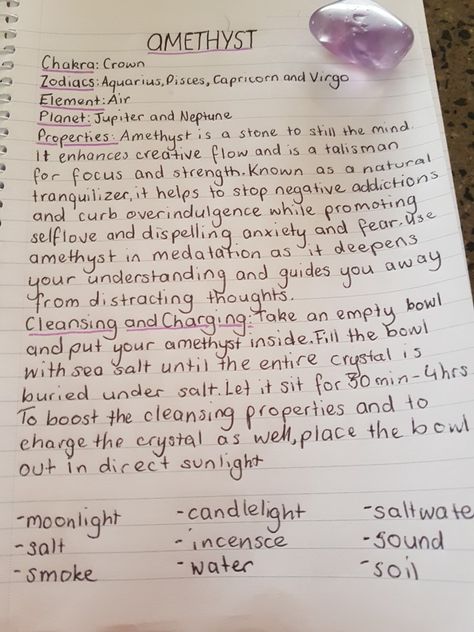 AMETHYST
Chakra: Crown
Zodiacs: Aquarius, Pisces, Capricorn and Virgo
Element: Air
Planet: Jupiter and Neptune
Properties: Amethyst is a stone to still the mind.
It enhances creative flow and is a talisman
for focus and strength. Known as a natural
tranquilizer, it helps to stop negative addictions
and curb overindulgence while promoting
selflove and dispelling anxiety and fear. Use
amethyst in medatation as it deepens
your understanding and guides you away
from distracting thoughts.
Cleansing and Charging: Take an empty bowl
and put your amethyst inside. Fill the bowl
with sea salt until the entire crystal is
buried under salt. Let it sit for 30min-4hrs
To boost the cleansing properties and to
charge the crystal as well, place the bowl
out in direct sunlight
-moonlight -candlelight -saltwate
-salt -incensce -sound
-smoke -water -soil